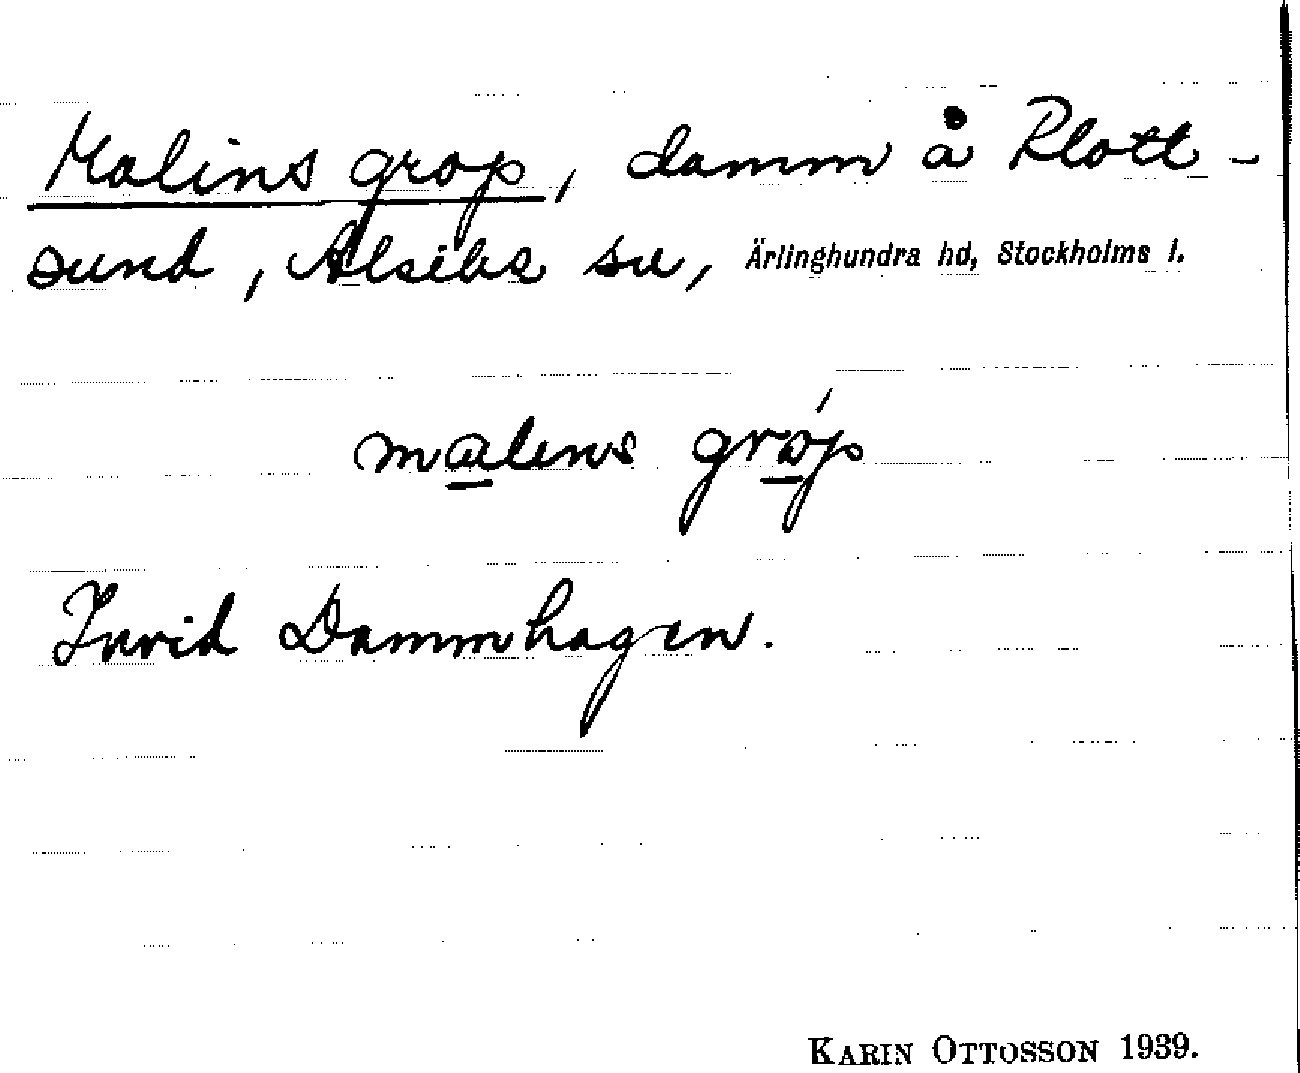 Malins grop, damm å Plott-
sund, Alsike sn, Ärlinghundra hd, Stockholms l.
malens gróp
Invid Dammhagen.
KARIN OTTOSSON 1939.